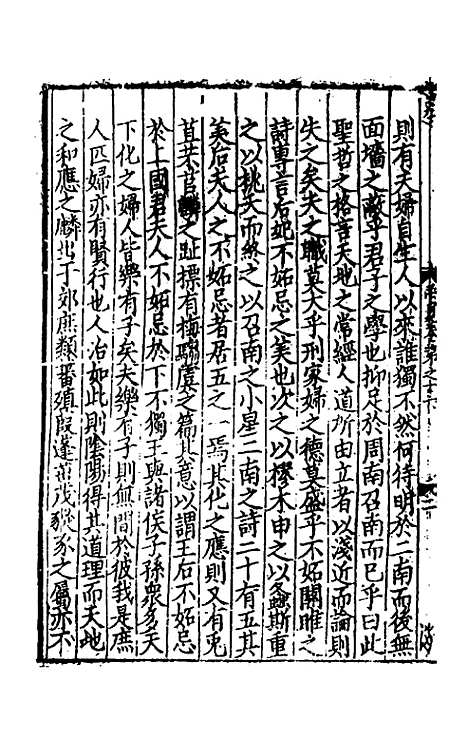 則有夫婦自生人以來誰獨不然何待明於二南而後無
面墻之蔽乎君子之學也抑足於周南召南而已乎曰此
聖哲之格言天地之常經人道所由立者以淺近而論則
失之矣夫夫之職莫大乎刑家婦之德莫盛乎不妬關雎之
詩專言后妃不妬忌之美也次之以樛木申之以螽斯重
之以桃夭而終之以召南之小星二南之詩二十有五其
美后夫人之不妬忌者居五之一焉其化之應則又有兎
苴芣苢麟之趾摽有梅騶虞之篇其意以謂王后不妬忌
於上國君夫人不妬忌於下不獨王與諸侯子孫衆多天
下化之婦人皆樂有子矣夫樂有子則無間於彼我是庶
人匹婦亦有賢行也人治如此則陰陽得其道理而天地
之和應之麟出于郊庶類蕃殖葭蓬茁茂豵豕之屬亦不